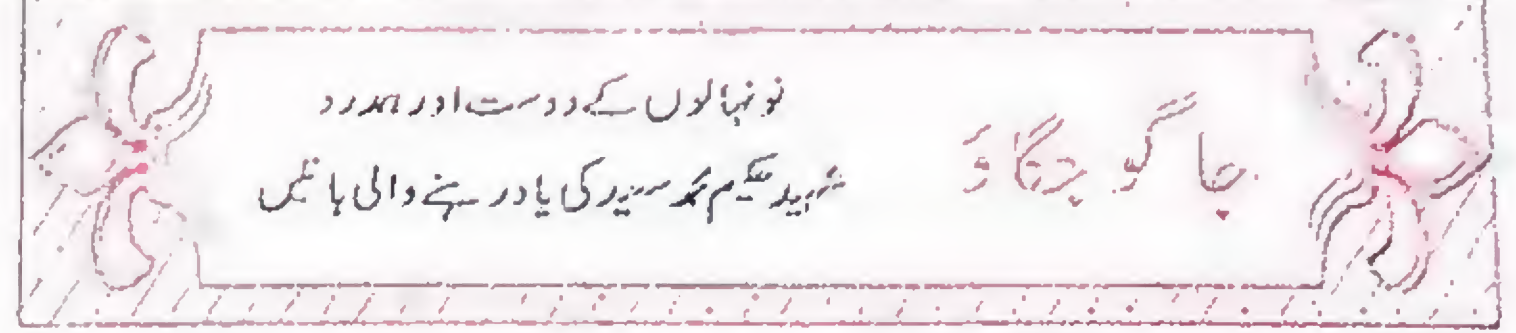 جاگو جگاؤ
نونہالوں کے دوست اور ہمدرد
شہید حکیم محمد سعید کی یاد رہنے والی باتیں